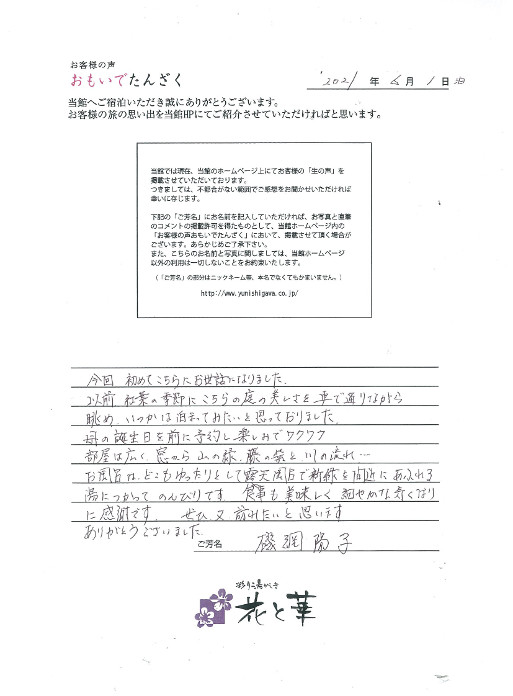 お客様の声
おもいでたんざく
'2021 年 6 月 1 日
当館へご宿泊いただき誠にありがとうございます。
お客様の旅の思い出を当館HPにてご紹介させていただければと思います。
当館では現在、当館のホームページ上にてお客様の「生の声」を
掲載させていただいております。
つきましては、不都合がない範囲でご感想をお聞かせいただければ
幸いに存じます。
下記の「ご芳名」にお名前を記入していただければ、お写真と直筆
のコメントの掲載許可を得たものとして、当館ホームページ内の
「お客様の声おもいでたんざく」において、掲載させて頂く場合が
ございます。あらかじめご了承下さい。
また、こちらのお名前と写真に関しましては、当館ホームページ
以外の利用は一切しないことをお約束いたします。
(「ご芳名」の部分はニックネーム等、本名でなくてもかまいません。)
http://www.yunishigawa.co.jp/
今回 初めてこちらにお世話になりました。
以前 紅葉の季節にこちらの庭の美しさを車で通りながら
眺め、いつかは泊ってみたいと思っておりました。
母の誕生日を前に予約し楽しみでワクワク
部屋は広く、窓から山の緑、藤の花と川の流れ…
お風呂は、どこもゆったりとして露天風呂で新緑を間近にあふれる
湯につかって のんびりです。食事も美味しく 細やかな心くばり
に感謝です。 ぜひ、又 訪れたいと思います
ありがとうございました。
ご芳名 磯洞 陽子
彩り湯かしき
花と華